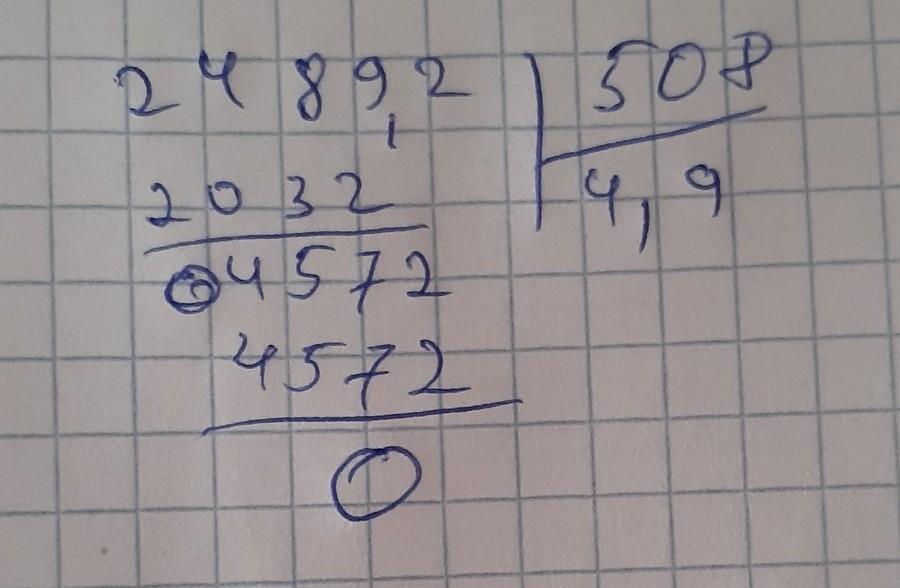 2489,2 508
4,9
2032
04572
4572
0